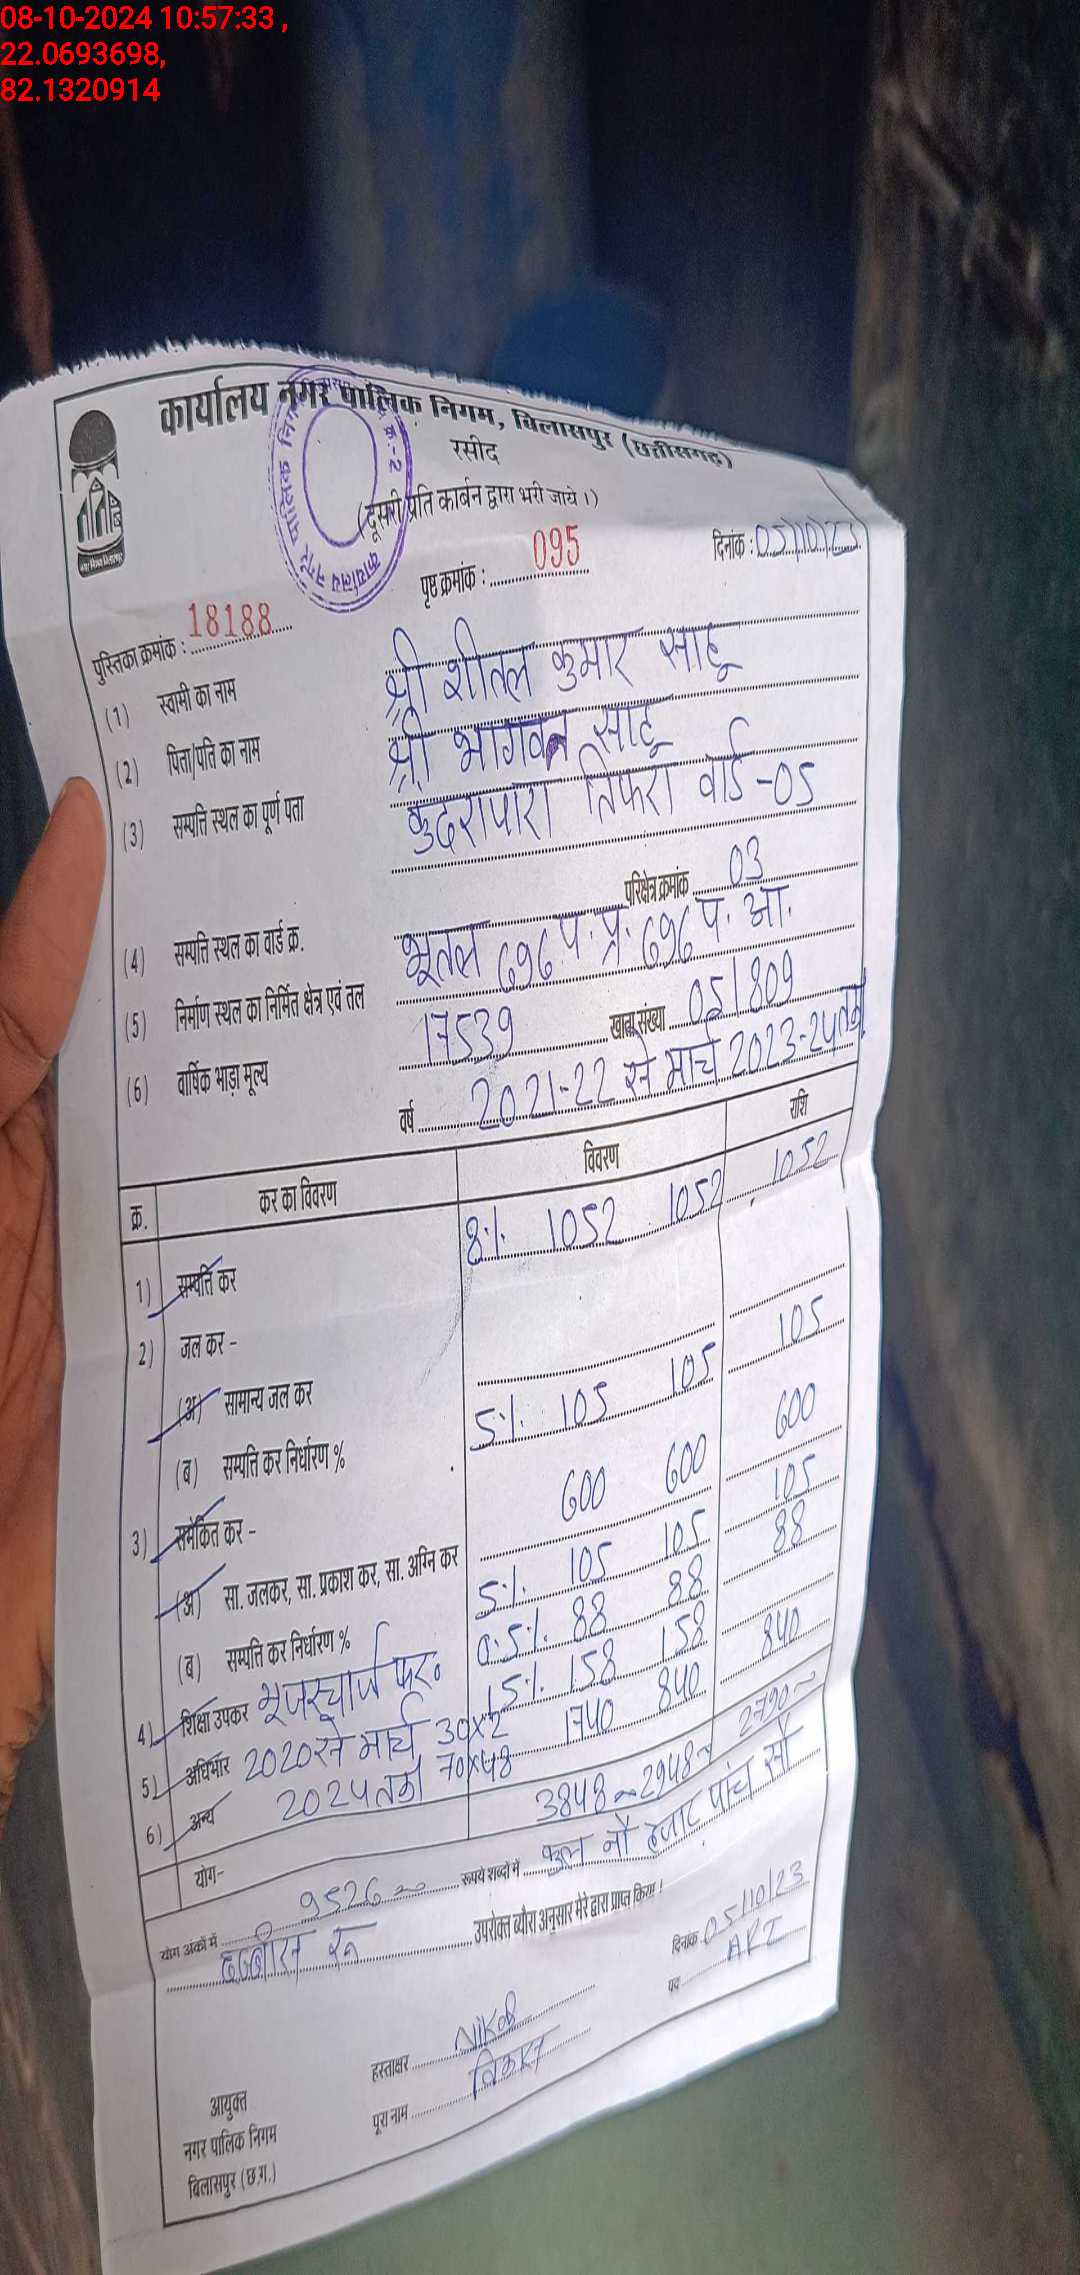 08-10-2024 10:57:33 ,
22.0693698,
82.1320914
कार्यालय नगर पालिक निगम, बिलासपुर (छत्तीसगढ़)
रसीद
(दूसरी प्रति कार्बन द्वारा भरी जाये ।)
पुस्तिका क्रमांक : 18188 पृष्ठ क्रमांक : 095 दिनांक : 05/10/23
(1) स्वामी का नाम श्री शीतल कुमार साहू
(2) पिता/पति का नाम श्री भागवन साहू
(3) सम्पत्ति स्थल का पूर्ण पता कुदरापारा तिफरा वार्ड-05
(4) सम्पत्ति स्थल का वार्ड क्र. परिक्षेत्र क्रमांक 03
(5) निर्माण स्थल का निर्मित क्षेत्र एवं तल भूतल 696 प. प्र. 696 प. आ.
(6) वार्षिक भाड़ा मूल्य 17539 खाता संख्या 051809
वर्ष 2021-22 से मार्च 2023-24 तक
क्र. कर का विवरण विवरण राशि
1) सम्पत्ति कर 8% 1052 1052 1052
2) जल कर -
(अ) सामान्य जल कर
(ब) सम्पत्ति कर निर्धारण % 5% 105 105 105
3) समेकित कर -
(अ) सा. जलकर, सा. प्रकाश कर, सा. अग्नि कर 600 600 600
(ब) सम्पत्ति कर निर्धारण % 5% 105 105 105
4) शिक्षा उपकर 0.5% 88 88 88
5) अधिभार 15% 158 158
6) अन्य यूजरचार्ज कर 2020 से मार्च 2024 तक 30x2 70x48 1740 840 840
योग- 3848 2948 2790
योग अंकों में 9526 रूपये शब्दों में कुल नौ हजार पांच सौ
छब्बीस रू उपरोक्त ब्यौरा अनुसार मेरे द्वारा प्राप्त किया !
दिनांक 05/10/23
पद ARI
हस्ताक्षर
पूरा नाम
आयुक्त
नगर पालिक निगम
बिलासपुर (छ.ग.)